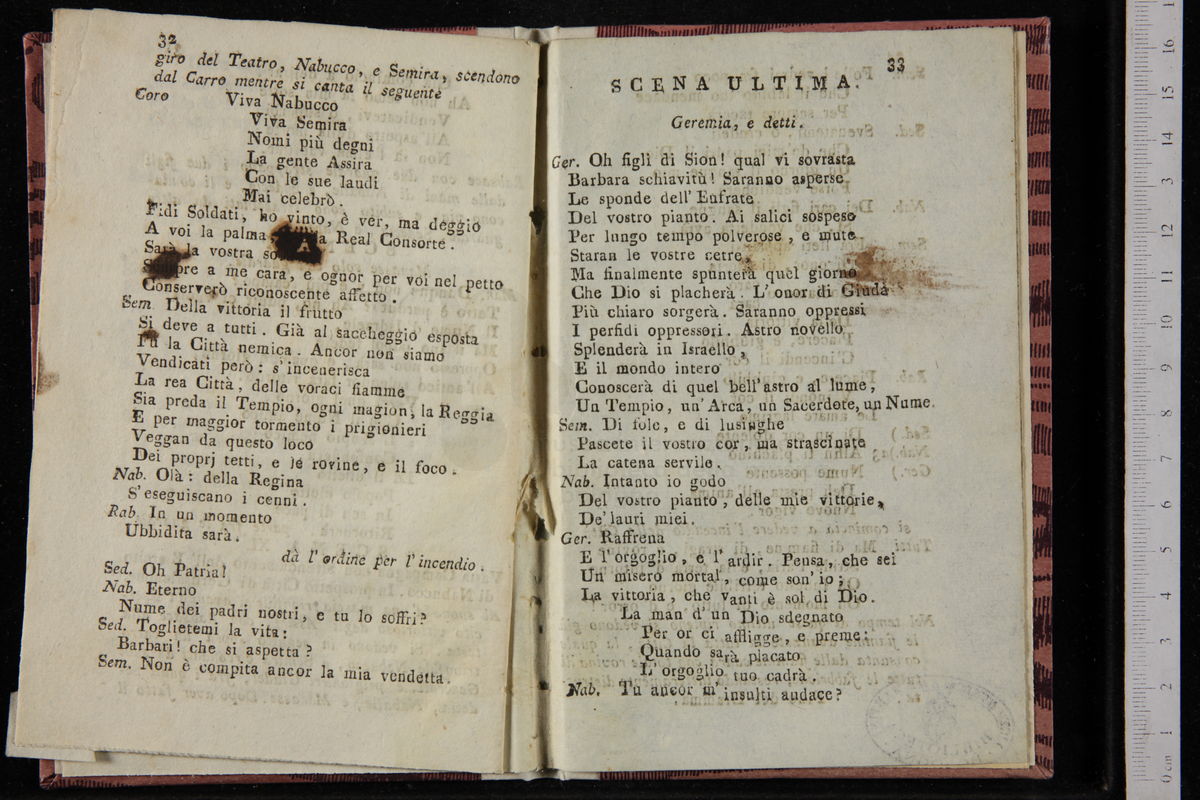 32
giro del Teatro, Nabucco, e Semira, scendono
dal Carro mentre si canta il seguente
Coro Viva Nabucco
Viva Semira
Nomi più degni
La gente Assira
Con le sue laudi
Mai celebrò.
Fidi Soldati, ho vinto, è ver, ma deggio
A voi la palma, a Real Consorte.
Sarà la vostra
a me cara, e ognor per voi nel petto
Conserverò riconoscente affetto.
Sem. Della vittoria il frutto
Si deve a tutti. Già al saccheggio esposta
Fu la Città nemica. Ancor non siamo
Vendicati però: s'incenerisca
La rea Città, delle voraci fiamme
Sia preda il Tempio, ogni magion, la Reggia
E per maggior tormento i prigionieri
Veggan da questo loco
Dei proprj tetti, e le rovine, e il foco.
Nab. Olà: della Regina
S'eseguiscano i cenni.
Rab. In un momento
Ubbidita sarà.
dà l'ordine per l'incendio.
Sed. Oh Patria!
Nab. Eterno
Nume dei padri nostri, e tu lo soffri?
Sed. Toglietemi la vita:
Barbari! che si aspetta?
Sem. Non è compita ancor la mia vendetta.
33
SCENA ULTIMA.
Geremia, e detti.
Ger. Oh figli di Sion! qual vi sovrasta
Barbara schiavitù! Saranno asperse
Le sponde dell'Eufrate
Del vostro pianto. Ai salici sospese
Per lungo tempo polverose, e mute
Staran le vostre cetre,
Ma finalmente spunterà quel giorno
Che Dio si placherà. L'onor di Giuda
Più chiaro sorgerà. Saranno oppressi
I perfidi oppressori. Astro novello
Splenderà in Israello,
E il mondo intero
Conoscerà di quel bell'astro al lume,
Un Tempio, un'Arca, un Sacerdote, un Nume.
Sem. Di fole, e di lusinghe
Pascete il vostro cor, ma strascinate
La catena servile.
Nab. Intanto io godo
Del vostro pianto, delle mie vittorie,
De'lauri miei.
Ger. Raffrena
E l'orgoglio, e l'ardir. Pensa, che sei
Un misero mortal, come son'io;
La vittoria, che vanti è sol di Dio.
La man d'un Dio sdegnato
Per or ci affligge, e preme:
Quando sarà placato
L'orgoglio tuo cadrà.
Nab. Tu ancor m'insulti audace?